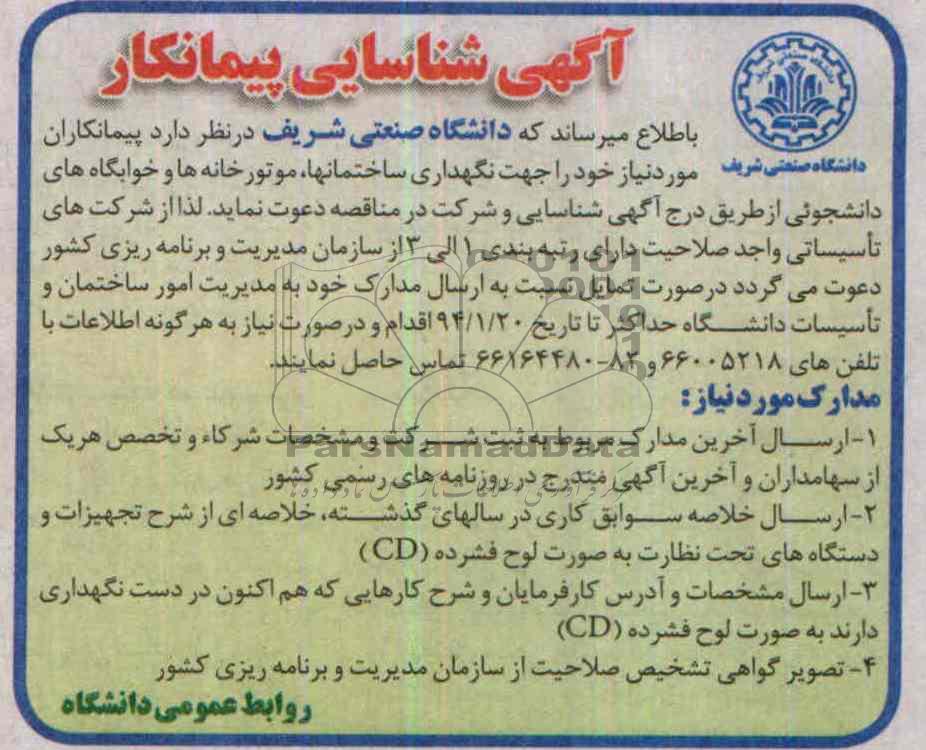 آگهی شناسایی پیمانکار
دانشگاه صنعتی شریف
باطلاع میرساند که دانشگاه صنعتی شریف درنظر دارد پیمانکاران
موردنیاز خود را جهت نگهداری ساختمانها، موتورخانه ها و خوابگاه های
دانشجوئی ازطریق درج آگهی شناسایی و شرکت در مناقصه دعوت نماید. لذا از شرکت های
تأسیساتی واجد صلاحیت دارای رتبه بندی ۱ الی ۳ از سازمان مدیریت و برنامه ریزی کشور
دعوت می گردد درصورت تمایل نسبت به ارسال مدارک خود به مدیریت امور ساختمان و
تأسیسات دانشگاه حداکثر تا تاریخ ۹۴/۱/۲۰ اقدام و درصورت نیاز به هرگونه اطلاعات با
تلفن های ۶۶۰۰۵۲۱۸ و ۸۳-۶۶۱۶۴۴۸۰ تماس حاصل نمایند.
مدارک موردنیاز:
۱-ارسال آخرین مدارک مربوط به ثبت شرکت و مشخصات شرکاء و تخصص هریک
از سهامداران و آخرین آگهی مندرج در روزنامه های رسمی کشور
۲-ارسال خلاصه سوابق کاری در سالهای گذشته، خلاصه ای از شرح تجهیزات و
دستگاه های تحت نظارت به صورت لوح فشرده (CD)
۳-ارسال مشخصات و آدرس کارفرمایان و شرح کارهایی که هم اکنون در دست نگهداری
دارند به صورت لوح فشرده (CD)
۴- تصویر گواهی تشخیص صلاحیت از سازمان مدیریت و برنامه ریزی کشور
روابط عمومی دانشگاه
ParsNamadData